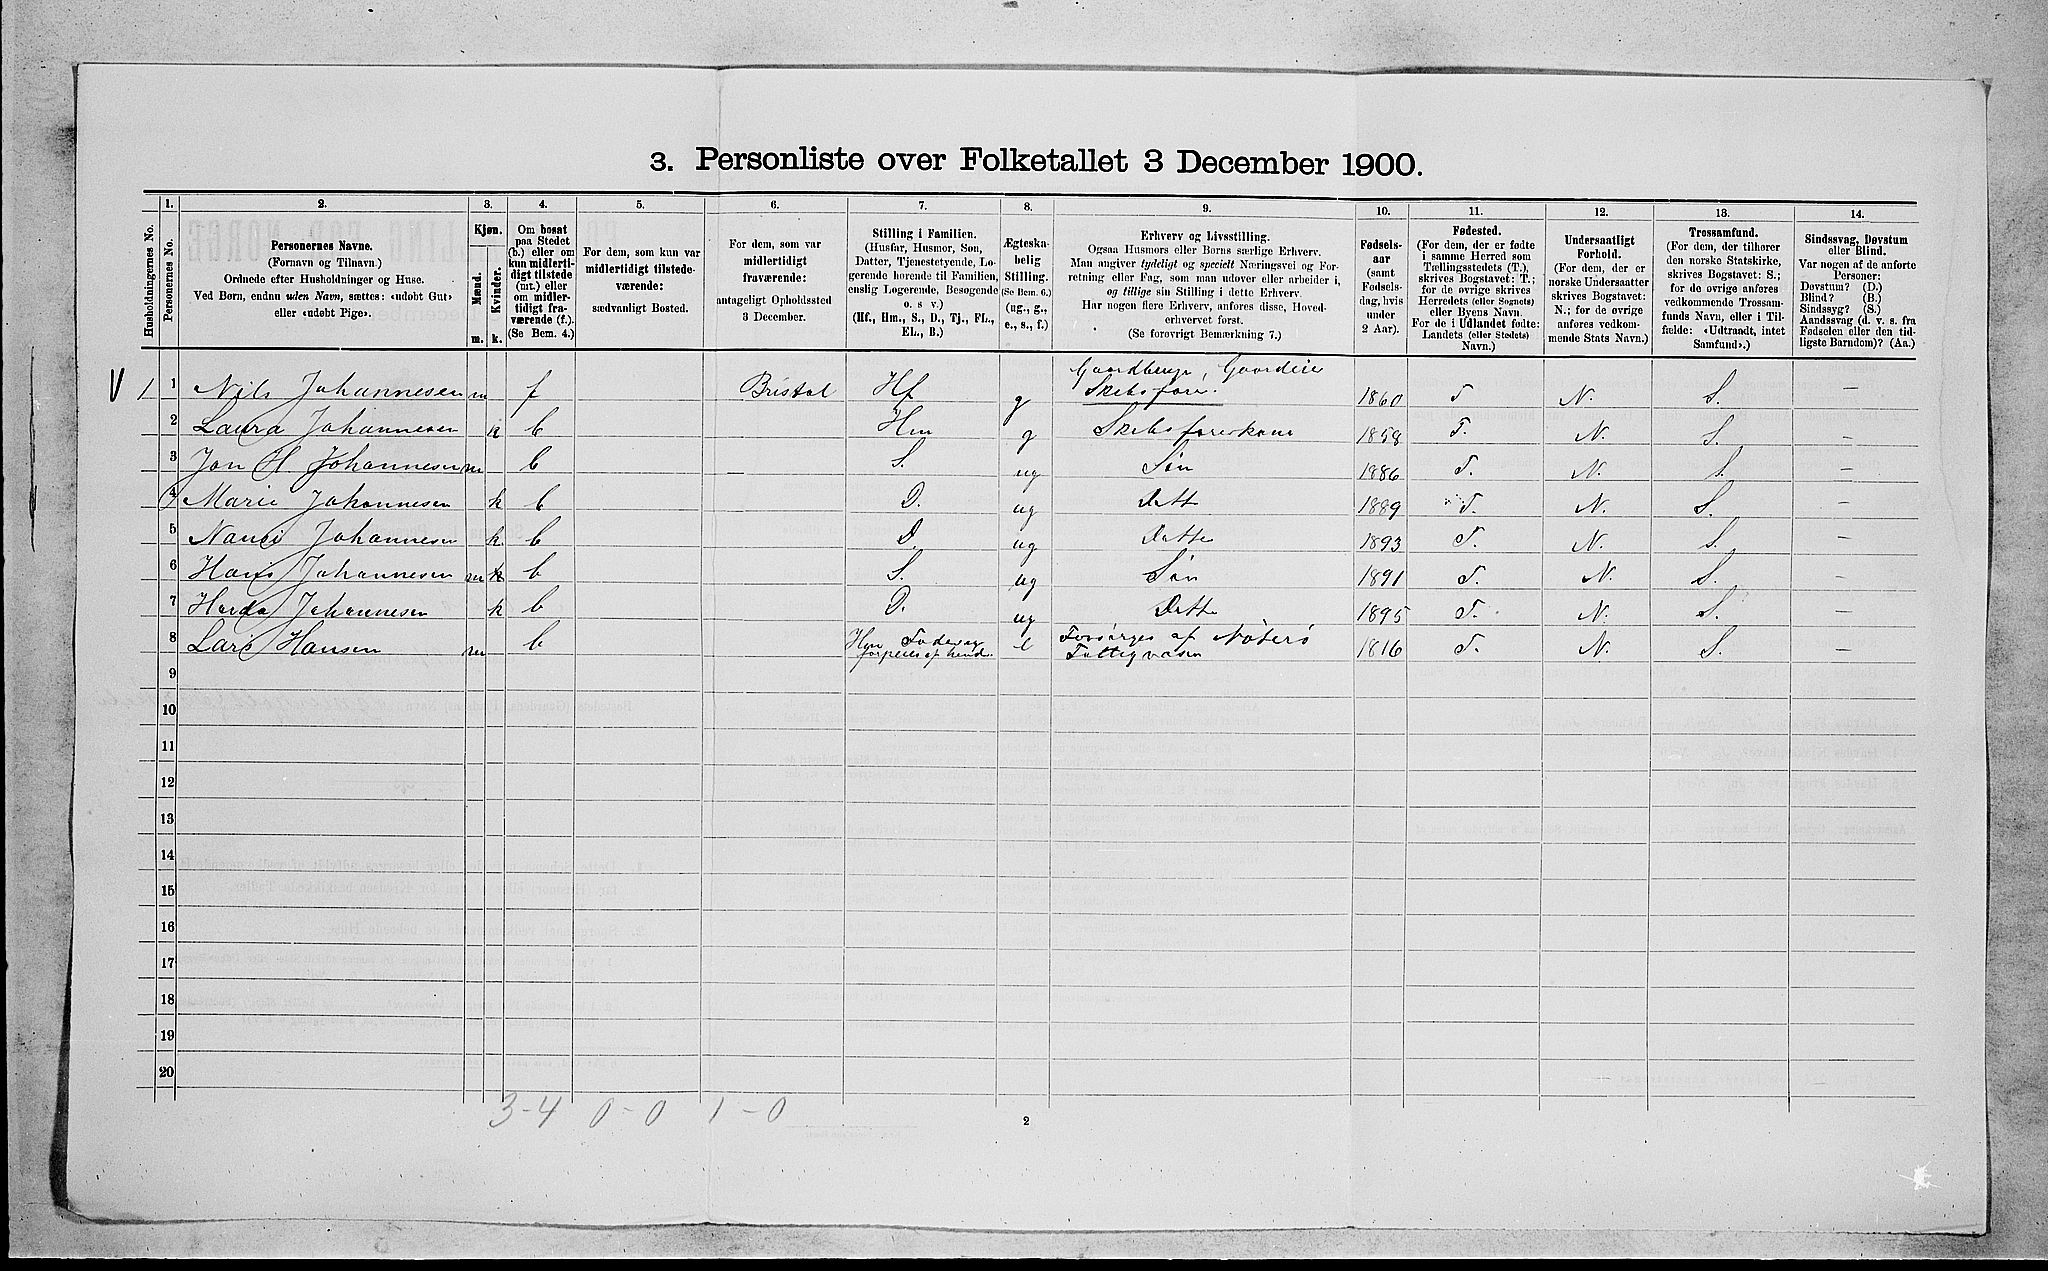 3. Personliste over Folketallet 3 December 1900.
Husholdningernes No.
1.
Personernes No.
2.
Personernes Navne.
(Fornavn og Tilnavn.)
Ordnede efter Husholdninger og Huse.
Ved Børn, endnu uden Navn, sættes: «udøbt Gut»
eller «udøbt Pige».
3.
Kjøn.
Mænd.
m.
Kvinder.
k.
4.
Om bosat
paa Stedet
(b.) eller om
kun midlerti-
digt tilstede
(mt.) eller
om midler-
tidigt fra-
værende (f.).
(Se Bem. 4.)
5.
For dem, som kun var
midlertidigt tilstede-
værende:
sædvanligt Bosted.
6.
For dem, som var
midlertidigt
fraværende:
antageligt Opholdssted
3 December.
7.
Stilling i Familien.
(Husfar, Husmor, Søn,
Datter, Tjenestetyende, Lo-
gerende hørende til Familien,
enslig Logerende, Besøgende
o. s v.)
(Hf., Hm., S., D., Tj., FL.,
EL., B.)
8.
Ægteska-
belig
Stilling.
(Se Bem. 6.)
(ug., g.,
e., s., f.)
9.
Erhverv og Livsstilling.
Ogsaa Husmors eller Børns særlige Erhverv.
Man angiver tydeligt og specielt Næringsvei og For-
retning eller Fag, som man udøver eller arbeider i,
og tillige sin Stilling i dette Erhverv.
Har nogen flere Erhverv, anføres disse, Hoved-
erhvervet først.
(Se forøvrigt Bemærkning 7.)
10.
Fødsels-
aar
(samt
Fødsels-
dag, hvis
under
2 Aar).
11.
Fødested.
(For dem, der er fødte
i samme Herred som
Tællingsstedets (T.),
skrives Bogstavet: T.;
for de øvrige skrives
Herredets (eller Sognets)
eller Byens Navn.
For de i Udlandet fødte:
Landets (eller Stedets)
Navn.)
12.
Undersaatligt
Forhold.
(For dem, der er
norske Undersaatter
skrives Bogstavet:
N.; for de øvrige
anføres vedkom-
mende Stats Navn.)
13.
Trossamfund.
(For dem, der tilhører
den norske Statskirke,
skrives Bogstavet: S.;
for de øvrige anføres
vedkommende Trossam-
funds Navn, eller i Til-
fælde: «Udtraadt, intet
Samfund».)
14.
Sindssvag, Døvstum
eller Blind.
Var nogen af de anførte
Personer:
Døvstum? (D.)
Blind? (B.)
Sindssyg? (S.)
Aandssvag (d. v. s. fra
Fødselen eller den tid-
ligste Barndom)? (Aa.)
V 1 1 Nils Johannesen m f Bristol Hf g Gaardbruge, Gaardeier Skibsfører. 1860 T N. S. –
2 Laura Johannesen k b Hm g Skibsførerkone 1858 T. N. S. –
3 Jon H Johannesen m b S. ug Søn 1886 T. N. S. –
4 Marie Johannesen k b D. ug Datt 1889 T. N. S. –
5 Nanci Johannesen k. b D. ug Datte 1893 T. N. S. –
6 Hans Johannesen m k b S. ug Søn 1891 T. N. S. –
7 Harda Johannesen k b D. ug Datte 1895 T. N. S. –
8 Lars Hansen m b Hm Fader og forpleies af hende. e Forsørges af Nøterø Fattigvæsen 1816 T. N. S. –
9
10
11
12
13
14
15
16
17
18
19
20
3-4 0-0 1-0
2